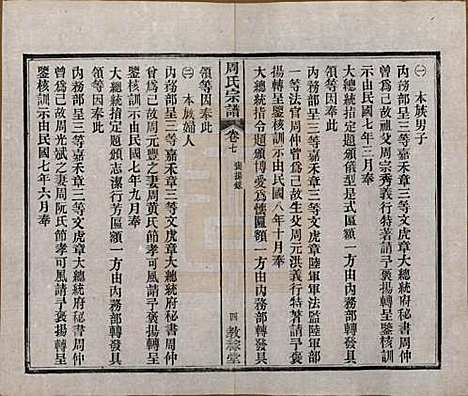 ㊀本族男子
內務部呈三等嘉禾章三等文虎章大總統府秘書周仲
曾爲已故祖父周宗秀義行特著請予褒揚轉呈鑒核訓
示由民國七年三月奉
大總統指令題頒儀型是式區額一方由內務部轉發具
領等因奉此
一等法官周仲曾爲已故生父周元洪義行特著請予褒
揚轉呈鑒核訓示由民國八年十月奉
大總統指令題頒博愛爲懷匾額一方由內務部轉發具
周氏宗譜
卷七
褒揚錄
四
敦睦堂
領等因奉此
㊁本族婦人
內務部呈三等嘉禾章三等文虎章大總統府秘書周仲
曾爲已故周元豐之妻周黃氏節孝可風請予褒揚轉呈
鑒核訓示由民國七年九月奉
大總統指定題頒志潔行芳區額一方由內務部轉發具
領等因奉此
內務部呈三等嘉禾章三等文虎章大總統府秘書周仲
曾爲已故周光斌之妻周阮氏節孝可風請予褒揚轉呈
鑒核訓示由民國七年六月奉